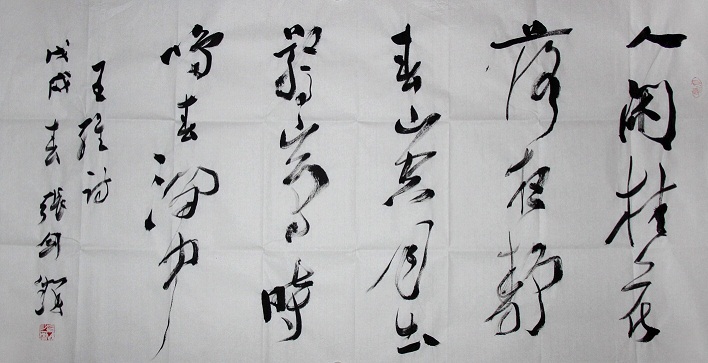 人闲桂花
落夜静
春山空月出
驚山鳥時
鳴春澗中
王維詩
戊戌春張